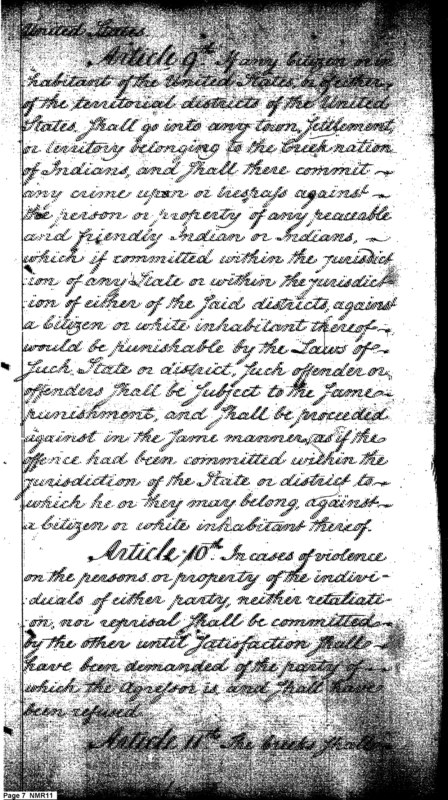 United States.
Article 9th. If any Citizen or in
habitant of the United States, or of either
of the territorial districts of the United
States, shall go into any town, settlement,
or territory belonging to the Creek nation
of Indians, and shall there commit
any crime upon or trespass against
the person or property of any peaceable
and friendly Indian or Indians,
which if committed within the jurisdict
:ion of any State or within the jurisdict
:ion of either of the said districts, against
a Citizen or white inhabitant thereof
would be punishable by the Laws of
such State or district, such offender or
offenders shall be subject to the same
punishment, and shall be proceeded
against in the same manner, as if the
offence had been committed within the
jurisdiction of the State or district to
which he or they may belong, against
a Citizen or white inhabitant thereof.
Article 10th. In cases of violence
on the persons or property of the indivi-
:duals of either party, neither retaliati-
:on, nor reprisal shall be committed
by the other until satisfaction shall
have been demanded of the party of
which the Agressor is, and shall have
been refused
Article 11th. The Creeks shall
Page 7 NMR11